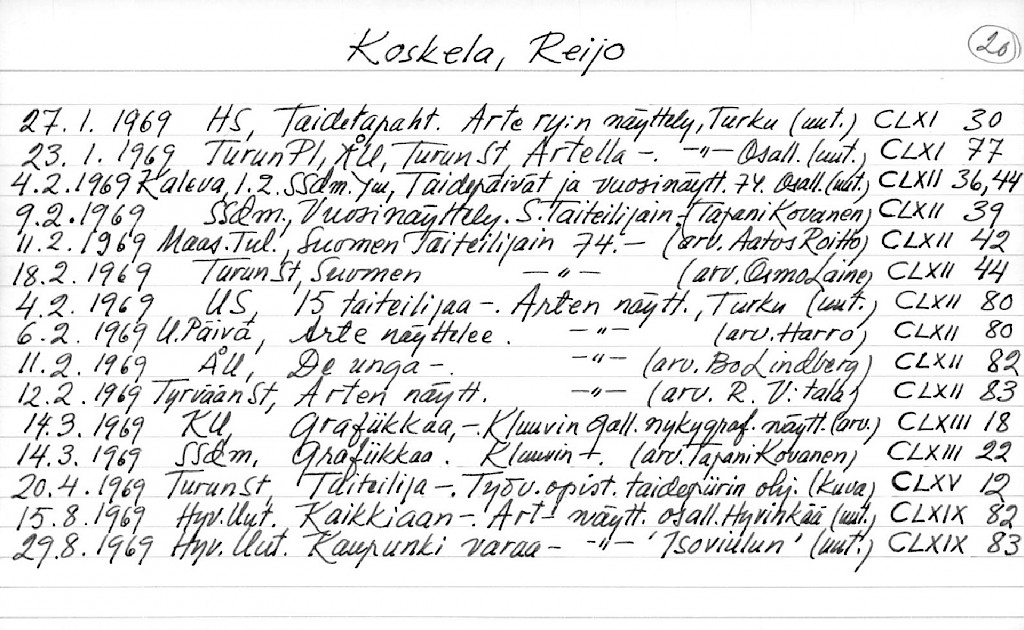 Koskela, Reijo 20
27. 1. 1969 HS, Taidetapaht. Arte ry:n näyttely, Turku (uut.) CLXI 30
23. 1. 1969 TurunPl, ÅU, TurunSt, Artella -. -"- Osall. (uut.) CLXI 77
4.2.1969 Kaleva, 1.2. SSdm. ym, Taidepäivät ja vuosinäytt. 74. Osall. (uut.) CLXII 36,44
9.2.1969 SSdm., Vuosinäyttely. S. Taiteilijain - (Tapani Kovanen) CLXII 39
11.2. 1969 Maas. Tul., Suomen Taiteilijain 74. - (arv. Aatos Roitto) CLXII 42
18.2. 1969 TurunSt, Suomen -"- (arv. Osmo Laine) CLXII 44
4.2. 1969 US, 15 taiteilijaa -. Arten näytt., Turku (uut.) CLXII 80
6.2. 1969 U.Päivä, Arte näyttelee. -"- (arv. Harro) CLXII 80
11.2. 1969 ÅU, De unga -. -"- (arv. Bo Lindberg) CLXII 82
12.2. 1969 TyrväänSt, Arten näytt. -"- (arv. R. V:tala) CLXII 83
14.3. 1969 KU, Grafiikkaa, -. Kluuvin gall. nykygraf. näytt. (arv.) CLXIII 18
14.3. 1969 SSdm, Grafiikkaa. Kluuvin -. (arv. Tapani Kovanen) CLXIII 22
20.4. 1969 TurunSt, Taiteilija -. Työv. opist. taidepiirin ohj. (kuva) CLXV 12
15.8. 1969 Hyv.Uut. Kaikkiaan -. Art- näytt. osall. Hyvinkää (uut.) CLXIX 82
29.8. 1969 Hyv. Uut. Kaupunki varaa - -"- 'Isoviulun' (uut.) CLXIX 83